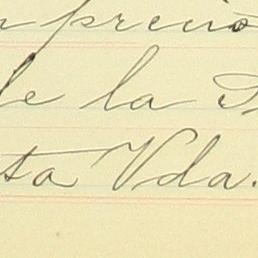 precio
de la
ta Vda.